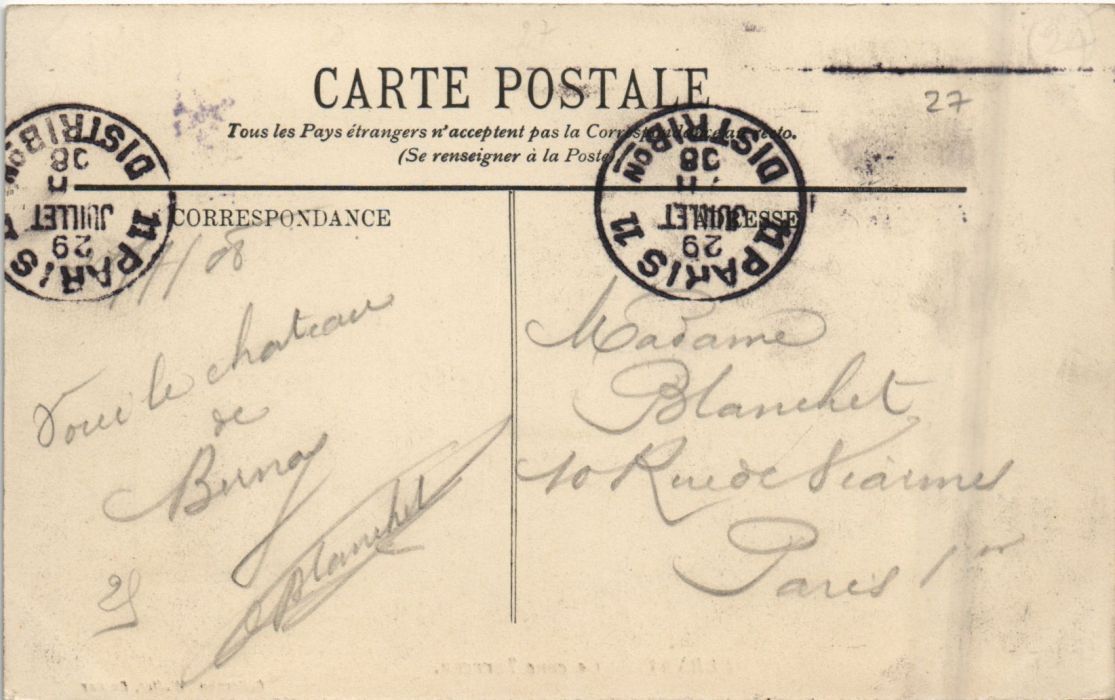 CARTE POSTALE
27
Tous les Pays étrangers n'acceptent pas la Correspondance au recto.
(Se renseigner à la Poste)
PARIS 11 DISTRIBON
29
JUILLET
08
PARIS 11 DISTRIBON 11
29
JUILLET
08
CORRESPONDANCE
/08
Voici le chateau
de
Bernay
Blanchet
25
ADRESSE
Madame
Blanchet
10 Rue de Viarmes
Paris 1er